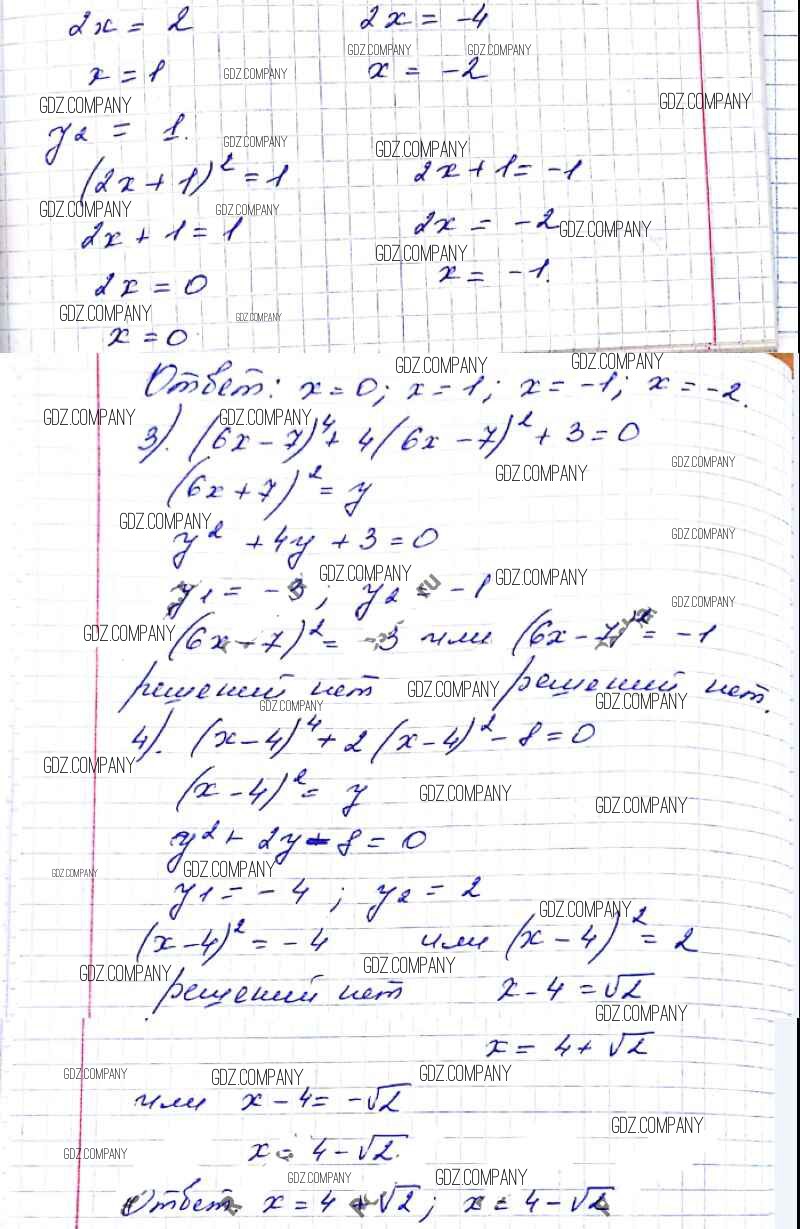 2x = 2 2x = -4
GDZ.COMPANY GDZ.COMPANY
x = 1 GDZ.COMPANY x = -2
GDZ.COMPANY GDZ.COMPANY
y2 = 1. GDZ.COMPANY
GDZ.COMPANY
(2x + 1)² = 1 2x + 1 = -1
GDZ.COMPANY GDZ.COMPANY
2x + 1 = 1 2x = -2 GDZ.COMPANY
GDZ.COMPANY
2x = 0 x = -1.
GDZ.COMPANY GDZ.COMPANY
x = 0
GDZ.COMPANY GDZ.COMPANY
Ответ: x = 0; x = 1; x = -1; x = -2.
GDZ.COMPANY GDZ.COMPANY
3). (6x - 7)⁴ + 4(6x - 7)² + 3 = 0
GDZ.COMPANY GDZ.COMPANY
(6x + 7)² = y
GDZ.COMPANY GDZ.COMPANY
y² + 4y + 3 = 0
GDZ.COMPANY GDZ.COMPANY
y1 = -3; y2 = -1
GDZ.COMPANY GDZ.COMPANY
(6x - 7)² = -3 или (6x - 7)² = -1
решений нет GDZ.COMPANY решений нет.
GDZ.COMPANY GDZ.COMPANY
4). (x - 4)⁴ + 2(x - 4)² - 8 = 0
GDZ.COMPANY
(x - 4)² = y GDZ.COMPANY GDZ.COMPANY
y² + 2y - 8 = 0
GDZ.COMPANY GDZ.COMPANY
y1 = -4; y2 = 2
GDZ.COMPANY
(x - 4)² = -4 или (x - 4)² = 2
GDZ.COMPANY GDZ.COMPANY
решений нет x - 4 = √2
GDZ.COMPANY
x = 4 + √2
GDZ.COMPANY GDZ.COMPANY GDZ.COMPANY
или x - 4 = -√2
GDZ.COMPANY
x = 4 - √2.
GDZ.COMPANY
GDZ.COMPANY GDZ.COMPANY
Ответ x = 4 + √2; x = 4 - √2